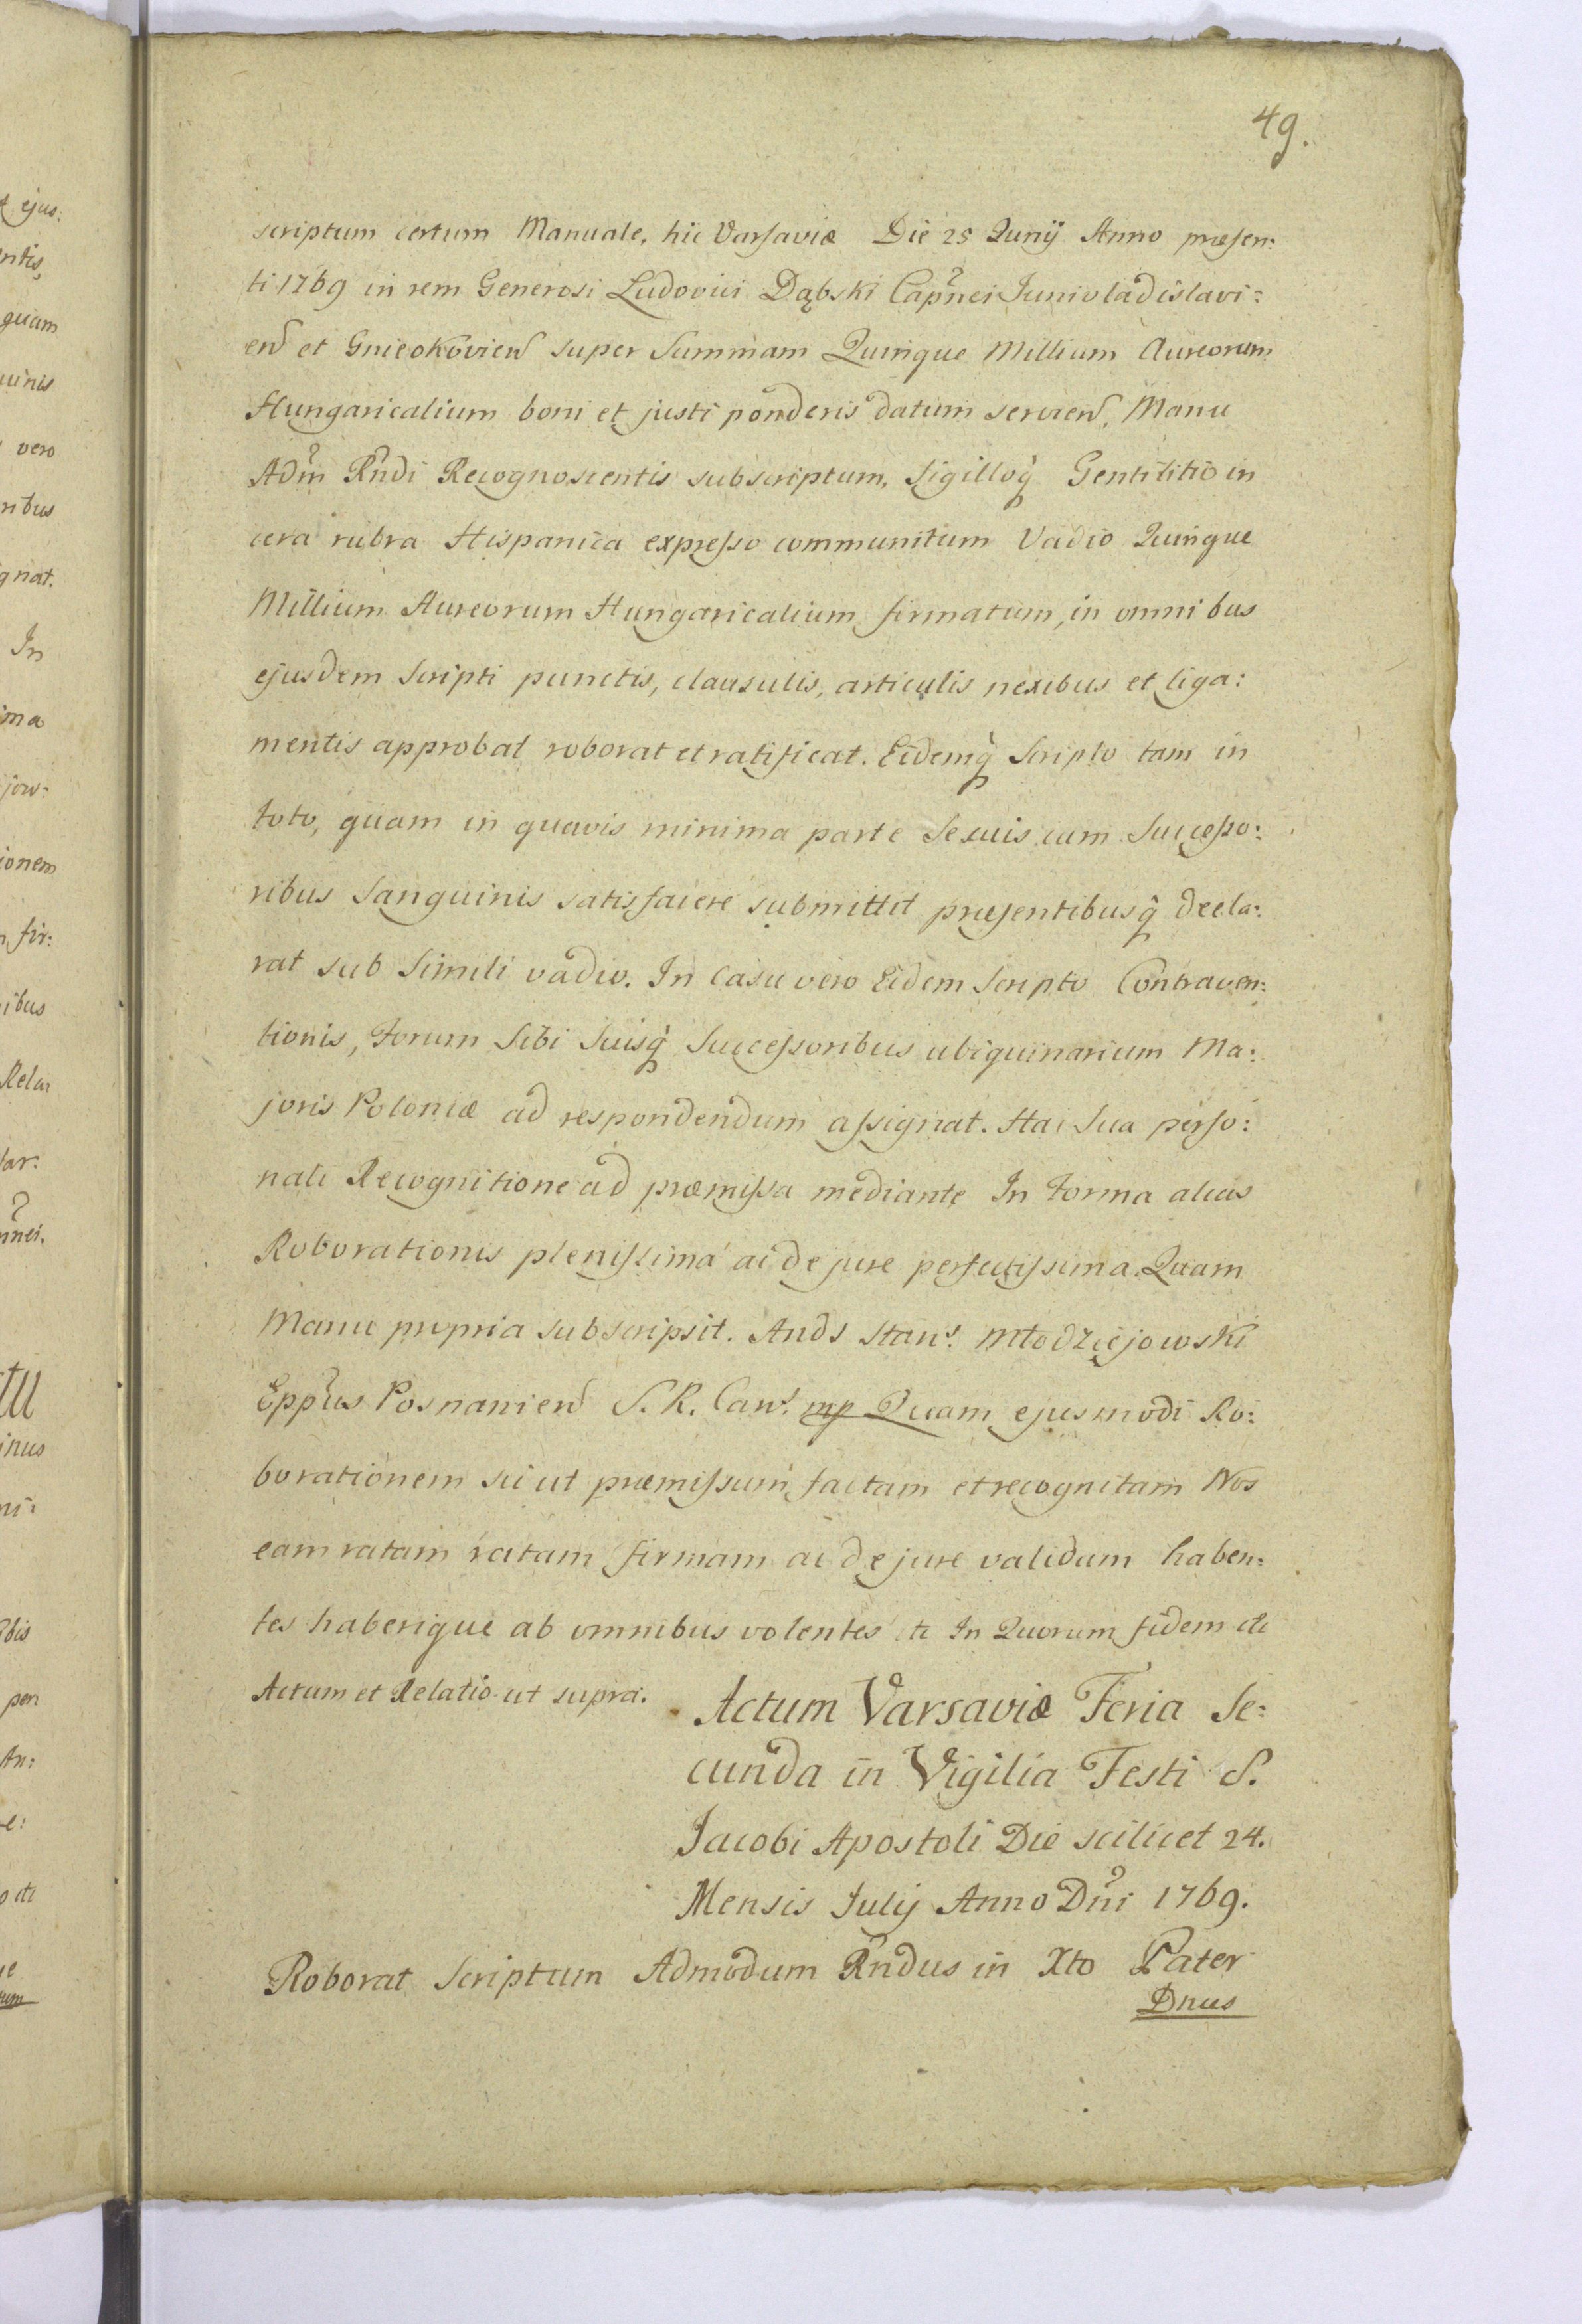 49.
scriptum certum Manuale, hic Varsaviæ Die 25 Junij Anno præsen:
ti 1769 in rem Generosi Ludovici Dąbski Capnei Junivladislavi:
en et Gnieokovien super Summam Quinque Millium Aureorum
Hungaricalium boni et justi ponderis datum servien, Manu
Adm Rndi Recognoscentis subscriptum, Sigilloq Gentilitio in
cera rubra Hispanica expresso communitum Vadio Quinque
Millium Aureorum Hungaricalium firmatum, in omnibus
ejusdem Scripti punctis, clausulis, articulis nexibus et liga:
mentis approbat roborat et ratificat. Eidemq Scripto tam in
toto, quam in quavis minima parte Se suis cum Successo:
ribus Sanguinis satisfacere submittit præsentibusq decla:
rat sub Simili vadio. In casu vero Eidem Scripto Contraven:
tionis, Forum Sibi Suisq Successoribus ubiquinarium Ma:
joris Poloniæ ad respondendum assignat. Hac Sua perso:
nali Recognitione ad præmissa mediante In Forma alias
Roborationis plenissima ac de jure perfectissima. Quam
Manu propria subscripsit. Ands Stans. Młodziejowski
Eppus Posnanien S. R. Cans. mp Quam ejusmodi Ro:
borationem sic ut præmissum factam et recognitam Nos
eam ratam ratam firmam ac de jure validum haben:
tes haberique ab omnibus volentes etc In Quorum fidem etc
Actum et Relatio ut supra.
Actum Varsaviæ Feria Se:
cunda in Vigilia Festi S.
Jacobi Apostoli Die scilicet 24.
Mensis Julij Anno Dni 1769.
Roborat Scriptum Admodum Rndus in Xto Pater
Dnus